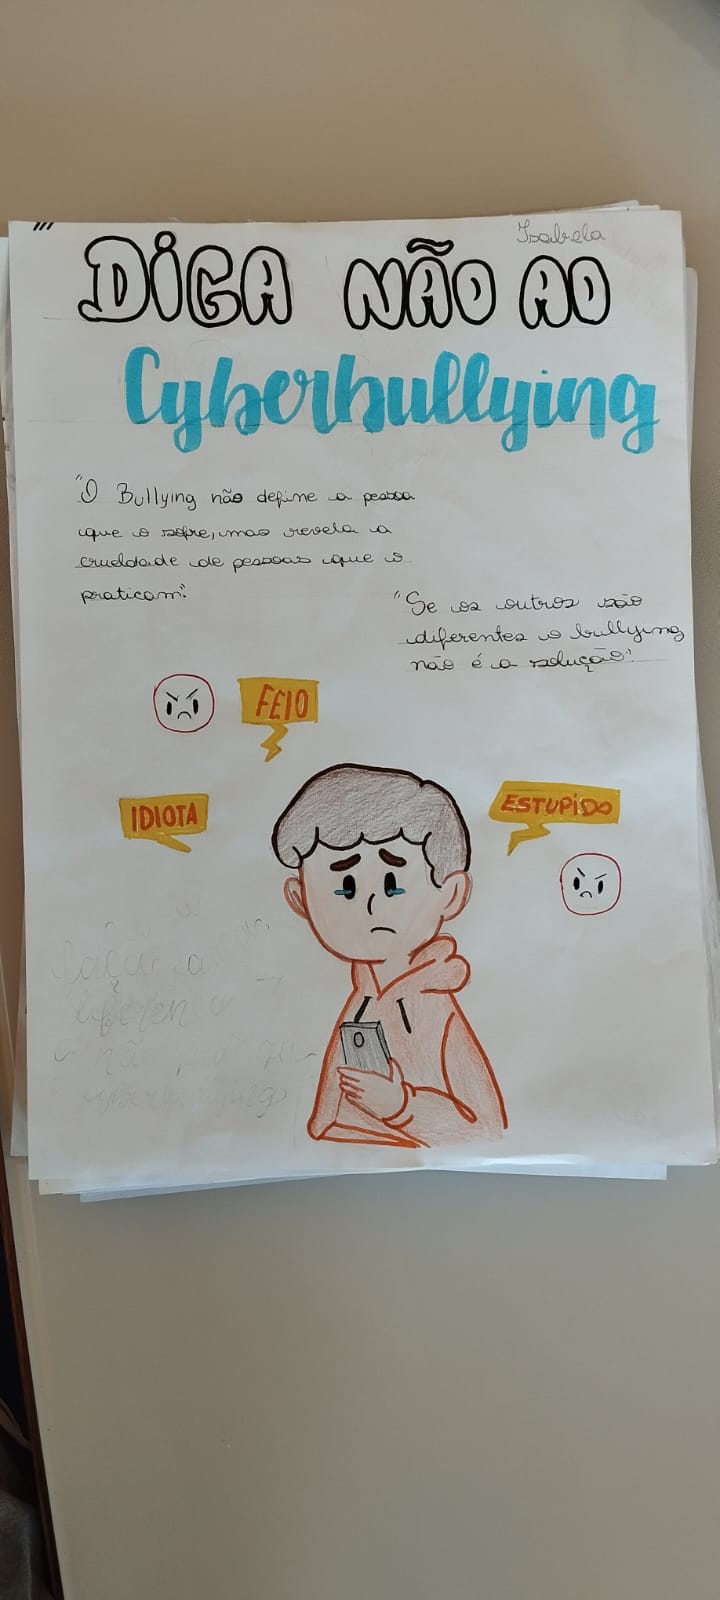 Isabela
DIGA NÃO AO
Cyberbullying
"O Bullying não define a pessoa
que o sofre, mas revela a
crueldade de pessoas que o
praticam".
"Se os outros são
diferentes o bullying
não é a solução".
FEIO
IDIOTA
ESTUPIDO
faça a
diferença
não
cyberbullying